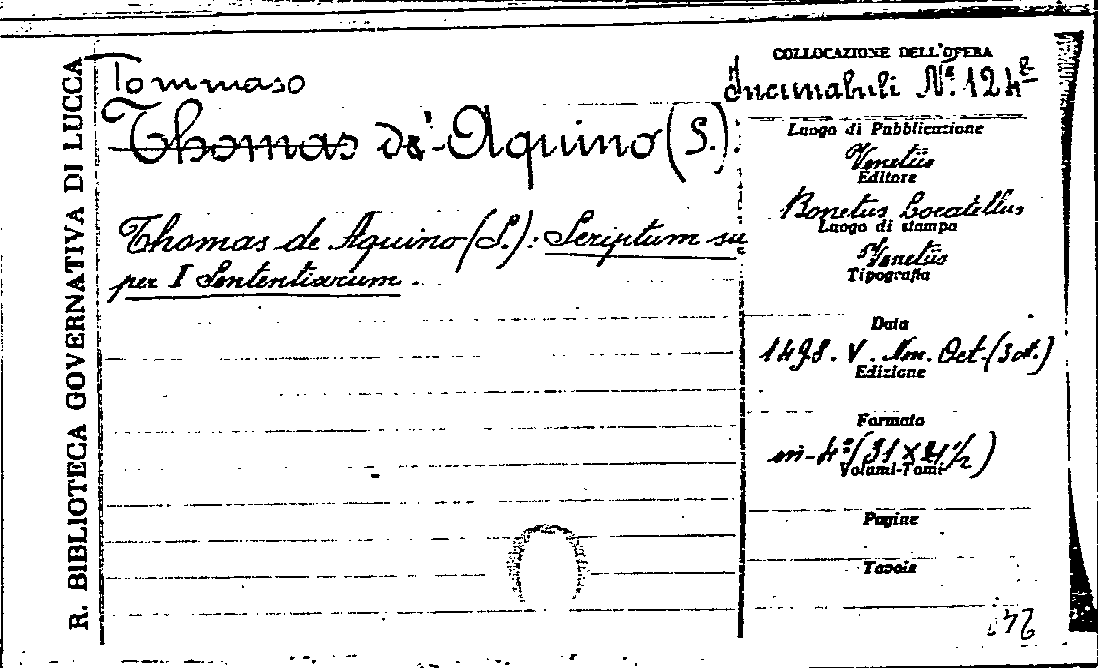 R. BIBLIOTECA GOVERNATIVA DI LUCCA
Tommaso
Thomas d' Aquino (S.):
Thomas de Aquino (S.): Scriptum su
per I Sententiarum.
COLLOCAZIONE DELL'OPERA
Incunabuli N.º 124
Luogo di Pubblicazione
Venetiis
Editore
Bonetus Locatellus
Luogo di stampa
Venetiis
Tipografia
Data
1498. V. Non. Oct. (3 ott.)
Edizione
Formato
in-4º (31 X 21 1/2)
Volumi-Tomi
Pagine
Tavole